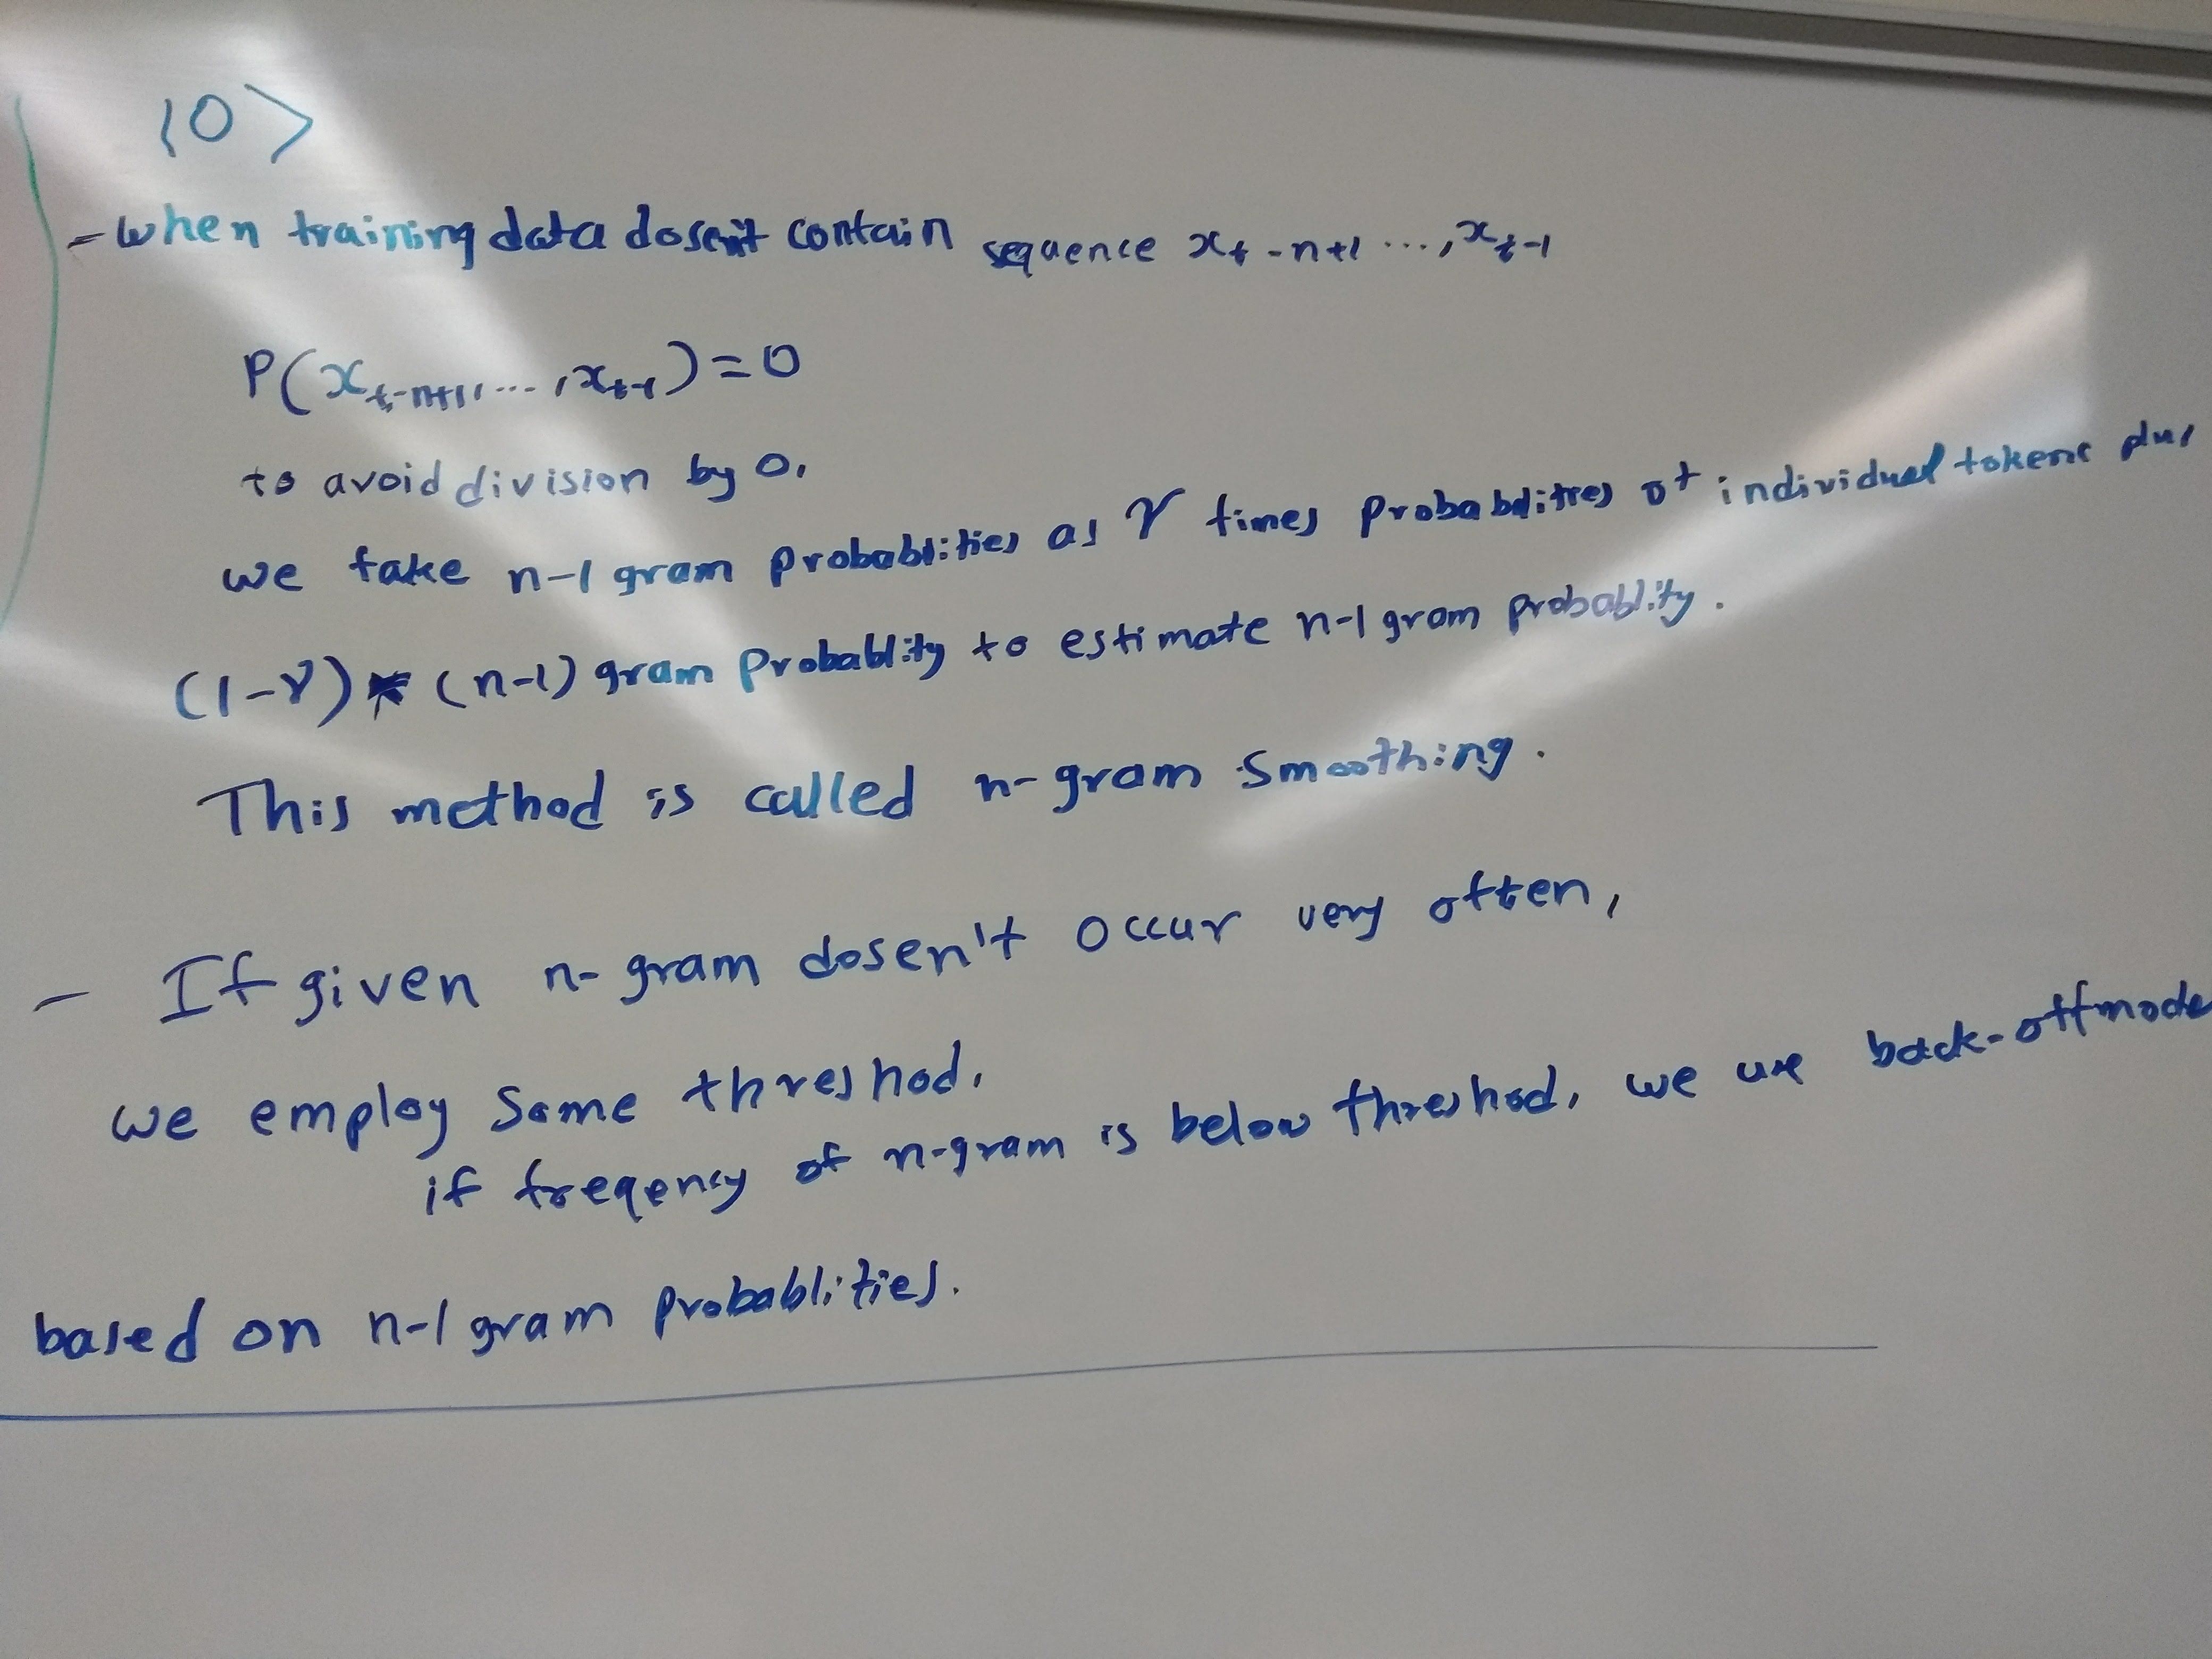 |0>
- when training data dosen't contain sequence x_t-n+1 ..., x_t-1
P(x_t-n+1, ..., x_t-1) = 0
to avoid division by 0,
we take n-1 gram probablities as γ times probabilities of individual tokens plus
(1-γ) * (n-1) gram probablity to estimate n-1 gram probablity.
This method is called n-gram smoothing.
- If given n-gram dosen't occur very often,
we employ some threshod.
if freqency of n-gram is below threshod, we use back-off mode
based on n-1 gram probablities.